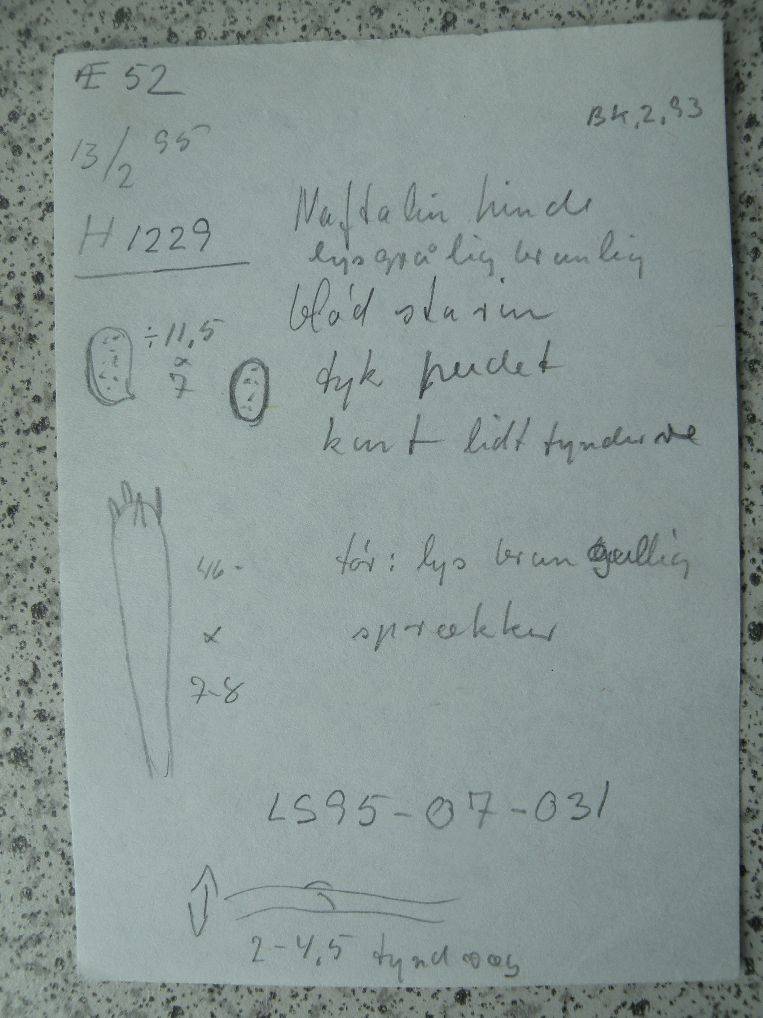 Æ 52
BK, 2, 93
13/2 95
H 1229
Naftalin hinde
lysgrålig brunlig
blød starin
÷ 11,5
x
7
tyk pudet
kant lidt tyndere
46-
x
7-8
tør: lys brun gullig
sprækker
LS95-07-031
2-4,5 tyndvæg